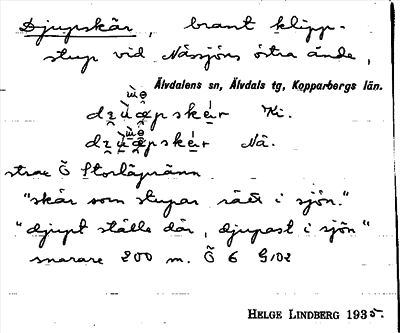 Djupskär, brant klipp-
stup vid Nässjöns östra ände,
Älvdalens sn, Älvdals tg, Kopparbergs län.
Ki.
Nä.
strax Ö Storlägränn
"skär som stupar rätt i sjön."
"djupt ställe där, djupast i sjön"
snarare 200 m. Ö 6 G102
HELGE LINDBERG 1935.